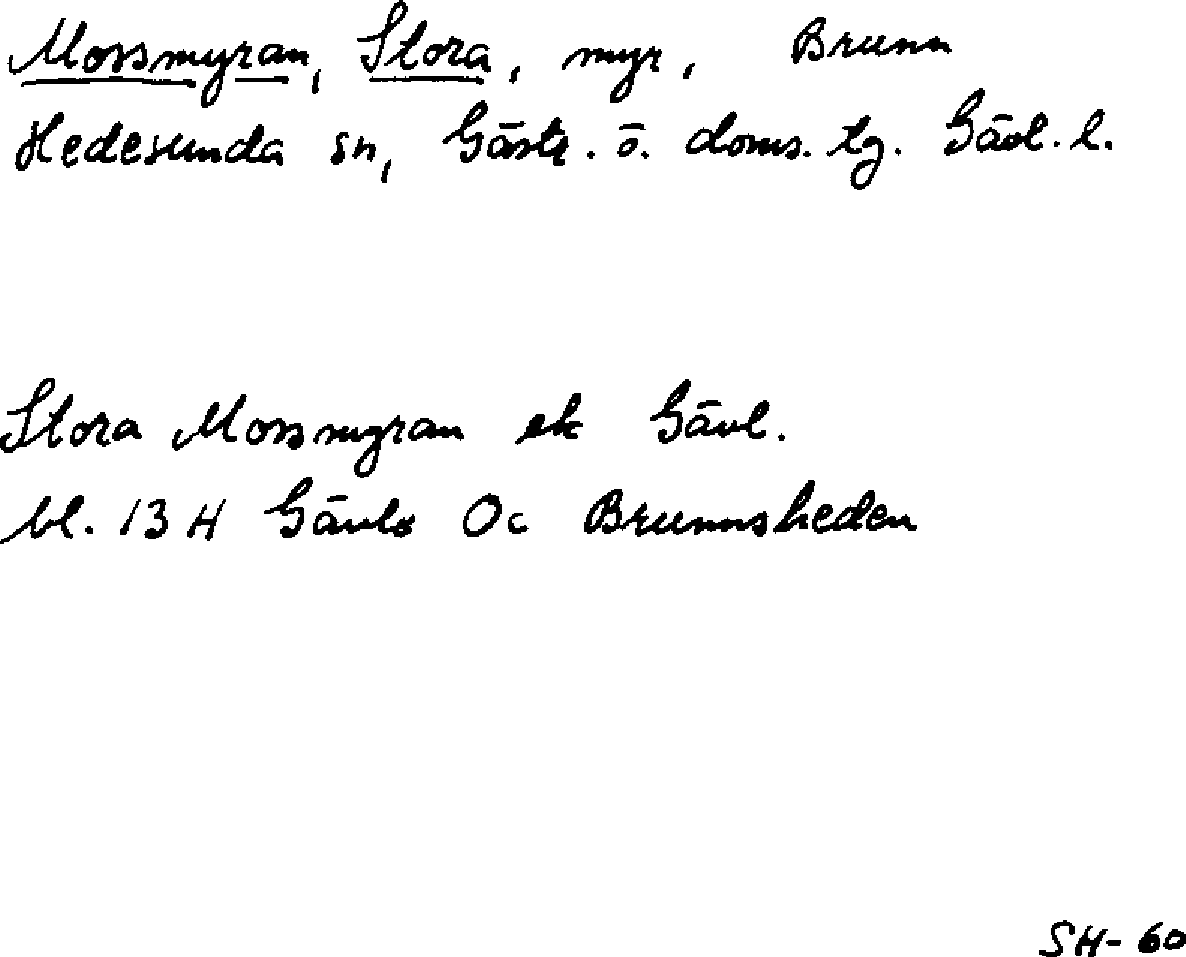 Mossmyran, Stora, myr, Brunn
Hedesunda sn, Gästr. ö. doms. tg. Gävl. l.
Stora Mossmyran ek Gävl.
bl. 13 H Gävle Oc Brunnsheden
SH-60